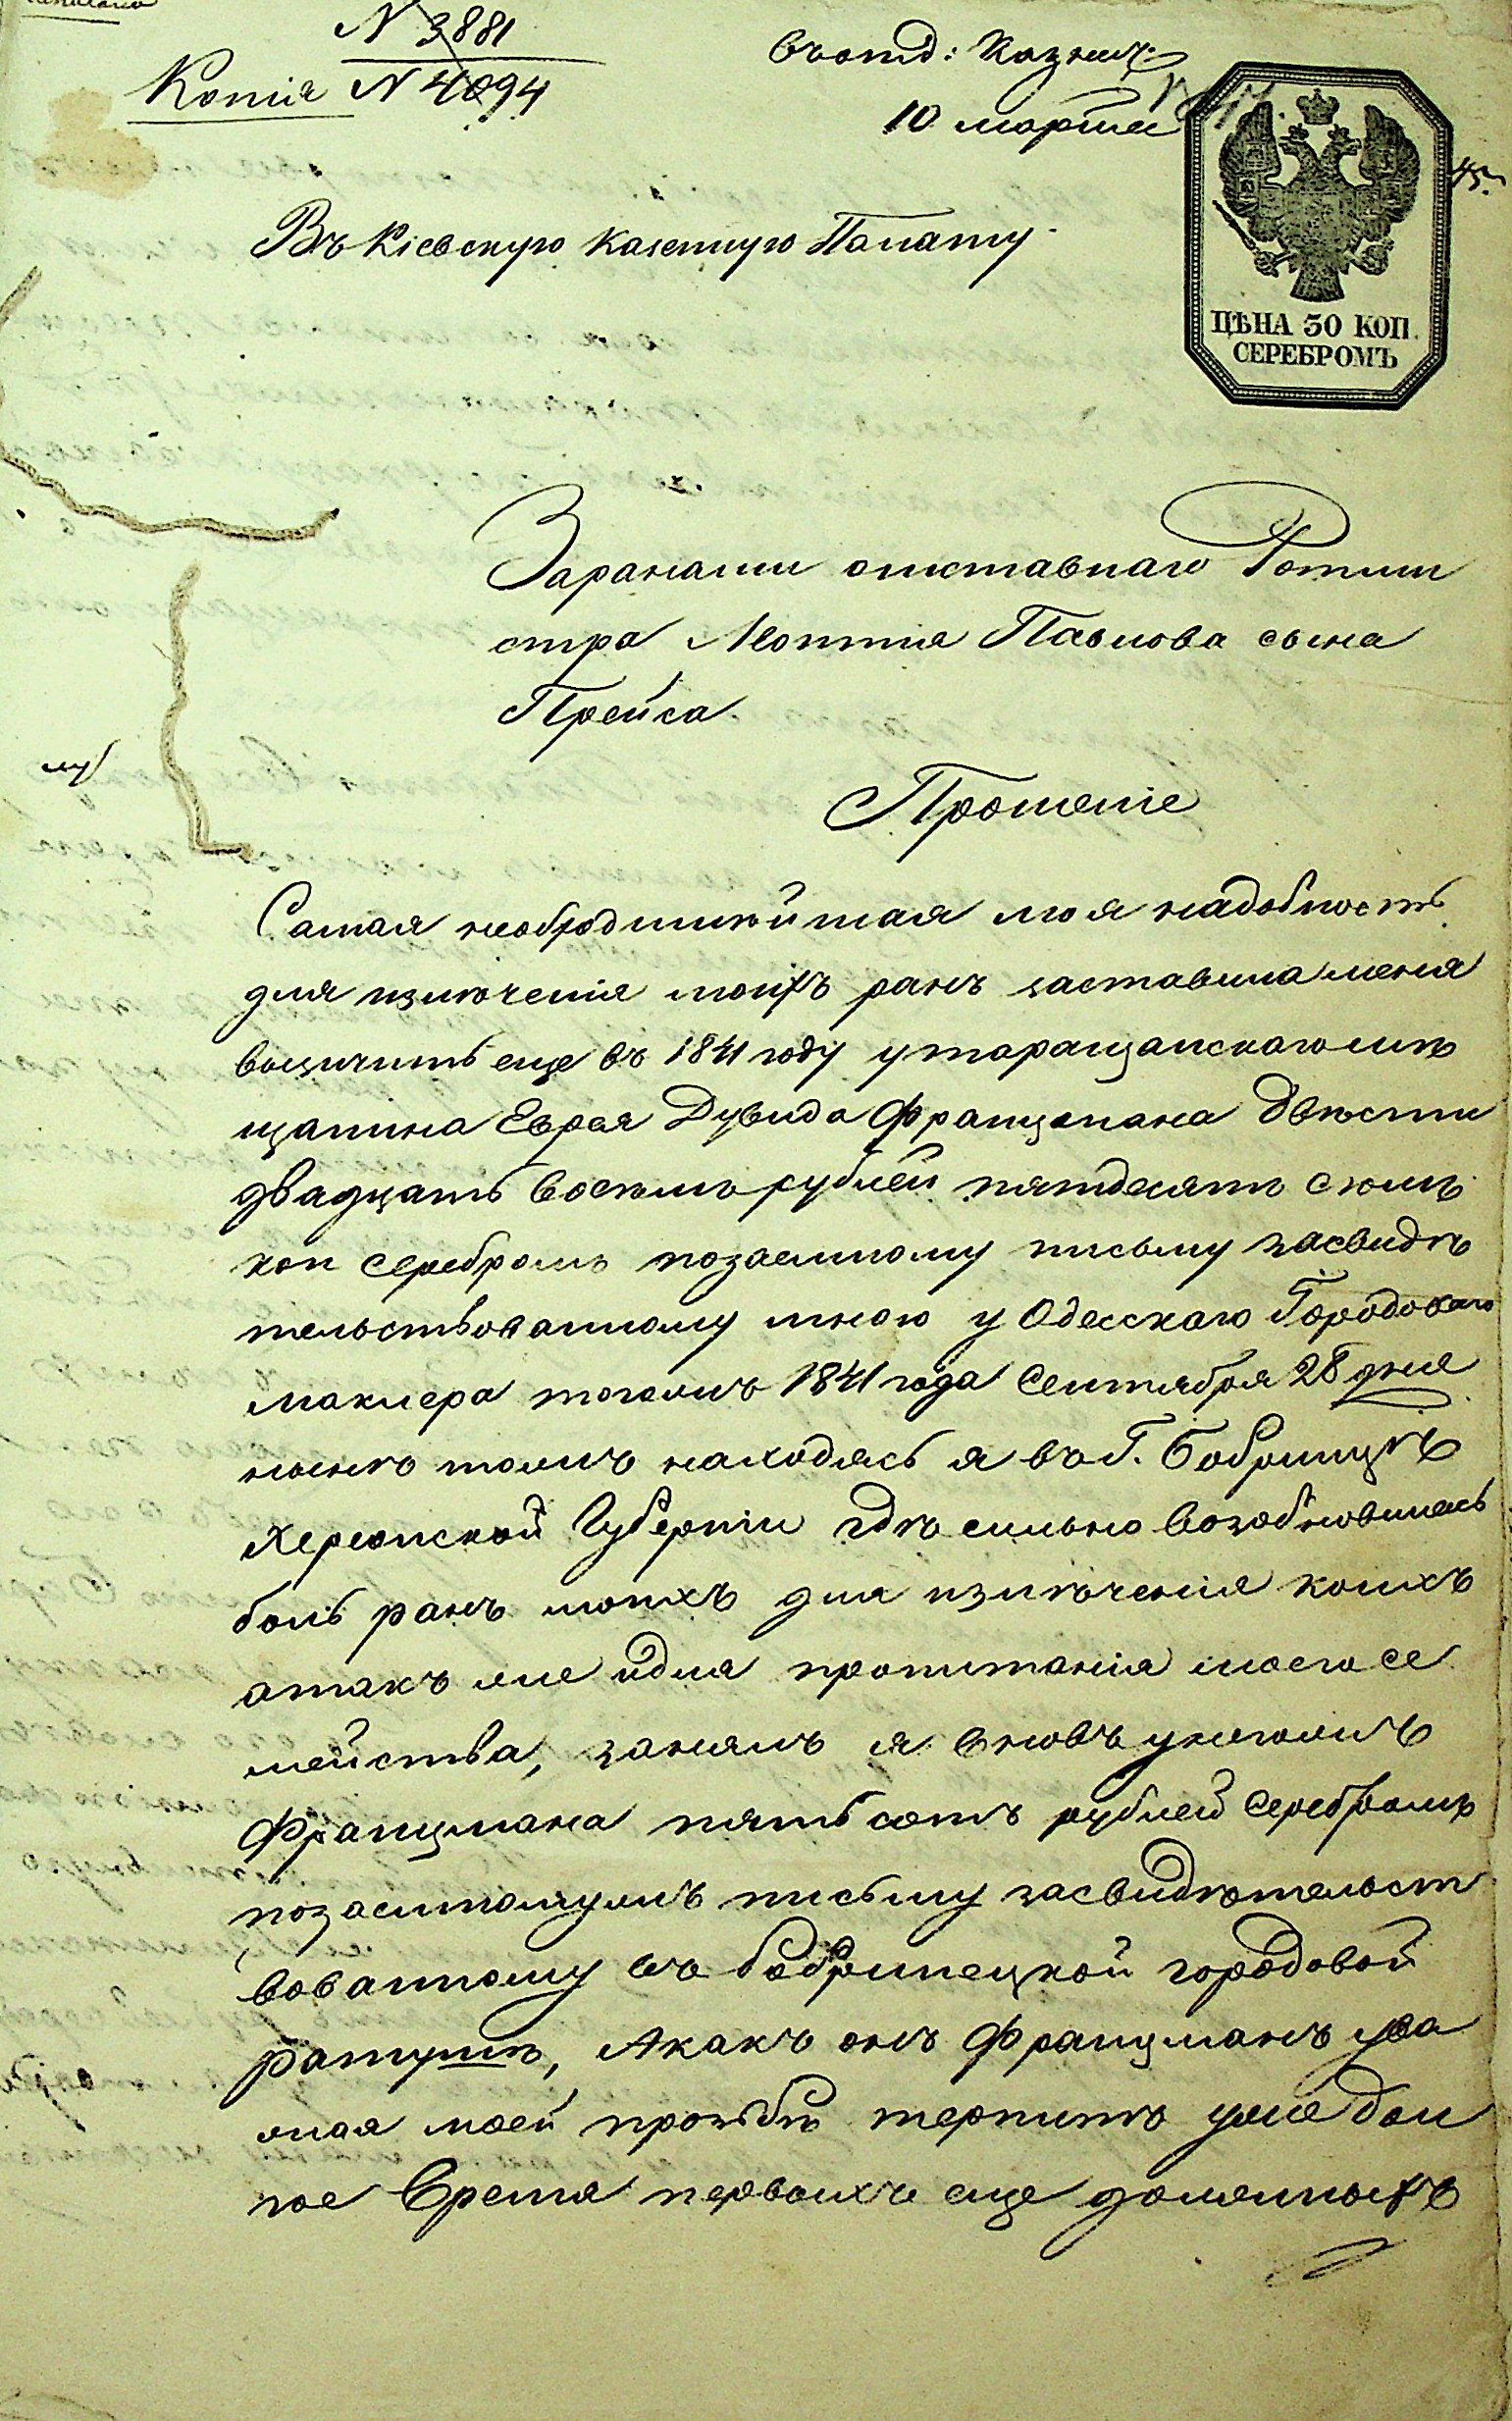 N 3881
Копія N 4094
Въ отд: Казнач:
10 марта
Въ Кіевскую Казенную Палату
ЦѢНА 30 КОП.
СЕРЕБРОМЪ
За ранами отставнаго Ротми
стра Леонтія Павлова сына
Прейса
Прошеніе
Самая необходимѣйшая моя надобность
для излѣченія моихъ ранъ заставила меня
еще въ 1841 году у таращанскаго мѣ
щанина Еврея Дувида Францмана двѣсти
двадцать восемь рублей пятдесятъ семь
коп серебромъ по заемному письму засвидѣ
тельствованному мною у Одесскаго Городоваго
маклера тогожъ 1841 года Сентября 28 дня
нынѣ находясь я въ Г. Бобринцѣ
Херсонской Губерніи гдѣ сильно возобновилась
боль ранъ моихъ для излѣченія коихъ
а такъ же и для пропитанія моего се
мейства, занялъ я вновь у негожъ
Францмана пять сотъ рублей серебромъ
по заемномужъ письму засвидѣтельст
вованному въ бобринецкой городовой
ратушѣ, А какъ онъ Францманъ ува
жая моей прозьбѣ терпитъ уже дол
гое время первыхъ еще должныхъ